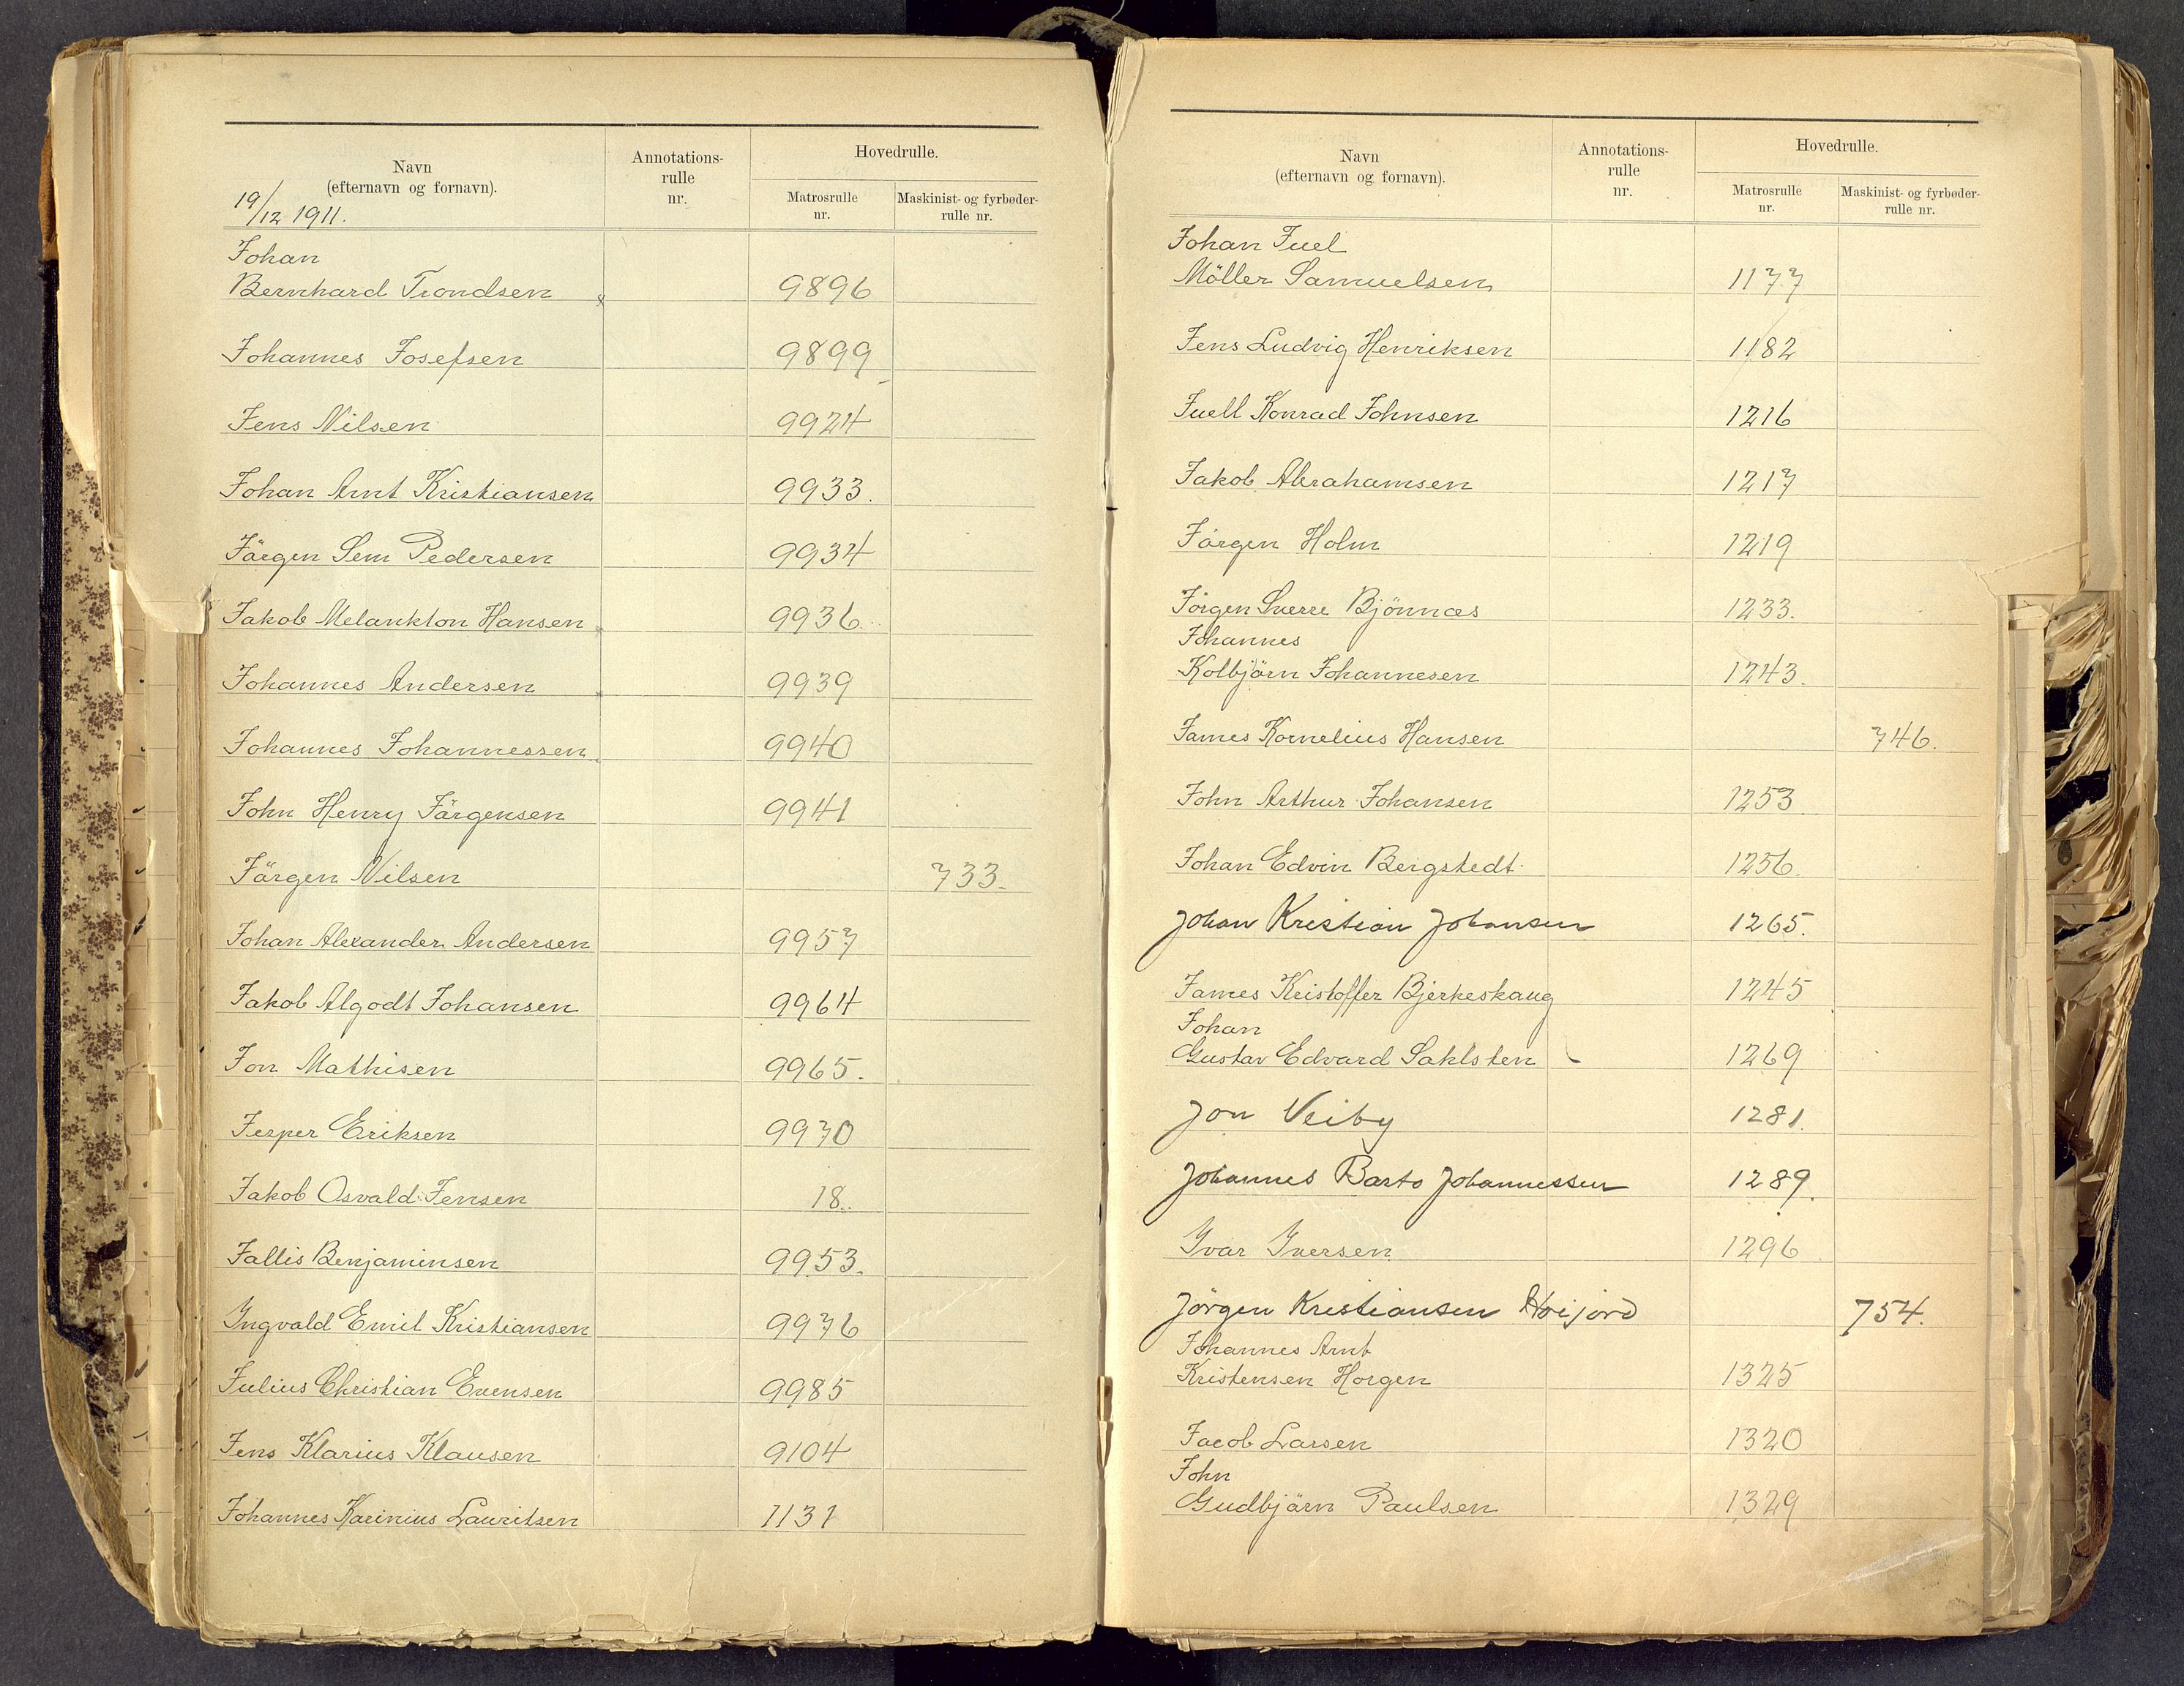 Navn
(efternavn og fornavn).
Annotations-
rulle
nr.
Hovedrulle.
Matrosrulle
nr.
Maskinist- og fyrbøder-
rulle nr.
19/12 1911.
Johan
Bernhard Trondsen 9896
Johannes Josefsen 9899
Jens Nilsen 9924
Johan Arnt Kristiansen 9933.
Jörgen Sem Pedersen 9934
Jakob Melankton Hansen 9936
Johannes Andersen 9939
Johannes Johannessen 9940
John Henry Jörgensen 9941
Jörgen Nilsen 733.
Johan Alexander Andersen 9957
Jakob Algodt Johansen 9964
Jon Mathisen 9965.
Jesper Eriksen 9970
Jakob Osvald Jensen 18.
Jallis Benjaminsen 9953.
Ingvald Emil Kristiansen 9976
Julius Christian Evensen 9985
Jens Klarius Klausen 9104
Johannes Karinius Lauritsen 1131
Navn
(efternavn og fornavn).
Annotations-
rulle
nr.
Hovedrulle.
Matrosrulle
nr.
Maskinist- og fyrbøder-
rulle nr.
Johan Juel
Möller Samuelsen 1177
Jens Ludvig Henriksen 1182
Juell Konrad Johnsen 1216
Jakob Abrahamsen 1217
Jörgen Holm 1219
Jörgen Sverre Bjönnæs 1233.
Johannes
Kolbjörn Johannesen 1243.
James Kornelius Hansen 746.
John Arthur Johansen 1253
Johan Edvin Bergstedt 1256.
Johan Kristian Johansen 1265.
James Kristoffer Bjerkeskaug 1245
Johan
Gustav Edvard Sahlsten 1269
Jon Veiby 1281.
Johannes Barto Johannessen 1289.
Ivar Iversen 1296
Jörgen Kristiansen Hoijord 754.
Johannes Arnt
Kristensen Horgen 1325
Jacob Larsen 1320
John
Gudbjörn Paulsen 1329